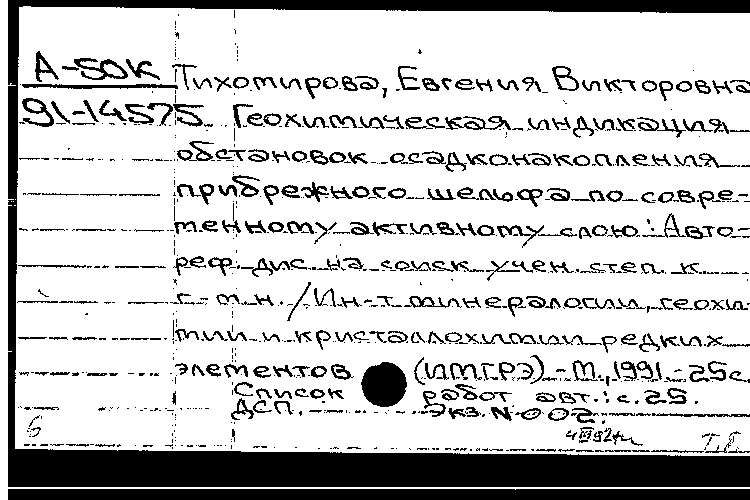 А-50К Тихомирова, Евгения Викторовна
91-14575 Геохимическая индикация
обстановок осадконакопления
прибрежного шельфа по совре-
менному активному слою: Авто-
реф. дис. на соиск. учен. степ. к.
г.-м.н. / Ин-т минералогии, геохи-
мии и кристаллохимии редких
элементов (ИМГРЭ). - М., 1991. - 25с.
Список работ авт.: с. 25.
ДСП. Экз. N 002.
6
Т.Г.